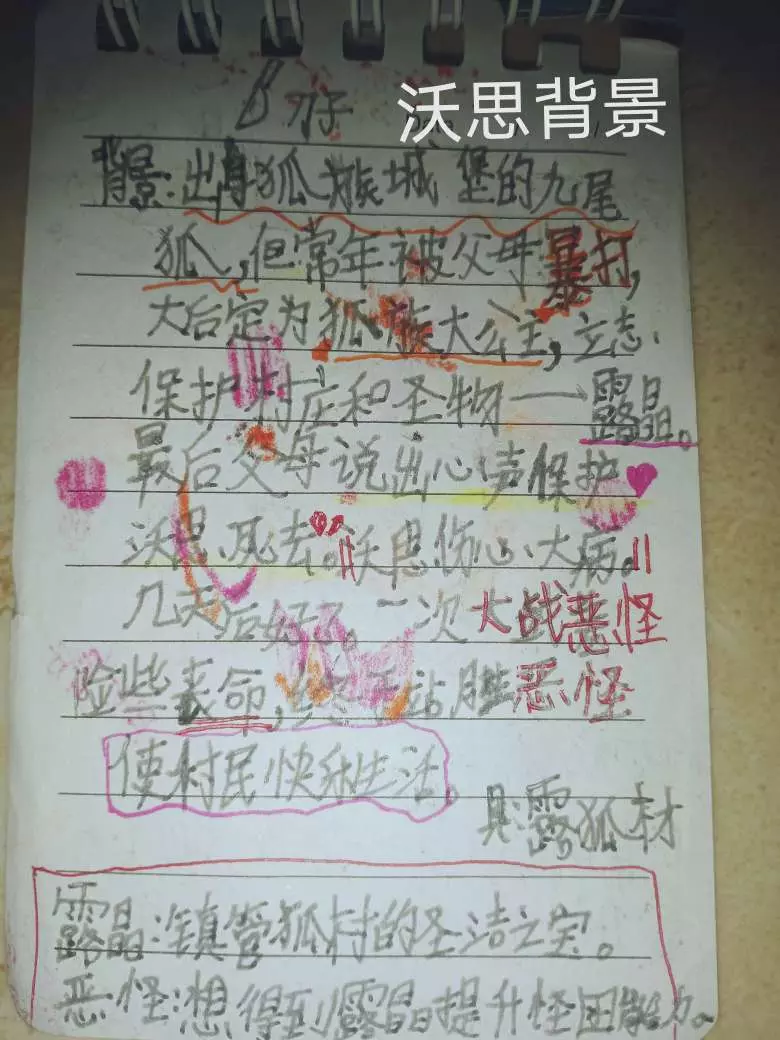 沃思背景
背景：出身狐族城堡的九尾
狐，但常年被父母暴打，
大后定为狐族大公主，立志
保护村庄和圣物——露晶。
最后父母说出心声保护
沃思，死去。沃思伤心大病。
几天后好了。一次大战恶怪
险些丧命，终于站胜恶怪
使村民快乐生活。
具：露狐村
露晶：镇管狐村的圣洁之宝。
恶怪：想得到露晶提升怪团能力。